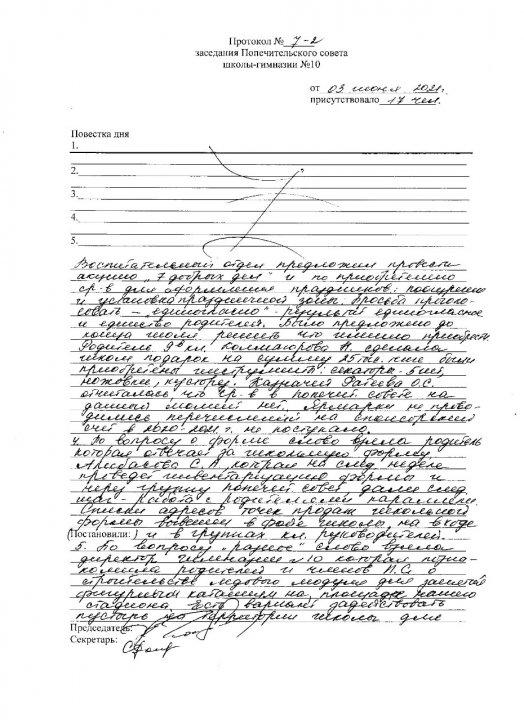 Протокол № 7-2
заседания Попечительского совета
школы-гимназии №10
от 03 июня 2021г.
присутствовало 17 чел.
Повестка дня
1.
2.
3.
4.
5.
Воспитательный отдел предложил провести
акцию "7 добрых дел" и по приобретению
ср-в для оформления праздников: поощрению
и установка праздничной зоны. Просьба проголо-
совать – "единогласно" - результат единогласное
и единство родителей. Было предложено до
конца июля решить что именно приобрести
Родители 9 кл. сделали
школе подарок на сумму 25 тыс. тнг были
приобретены инструменты: секаторы - 5 шт,
ножовки, кусторез. Казначей Фатеева О.С.
отчиталась, что ср-в в попечит. совете на
данный момент нет. Ярмарки не прово-
дились, перечислений на спонсорский
счет в 2021 г. не поступало.
4. По вопросу о форме слово взяла родитель
которая отвечает за школьную форму.
С.А., которая на след. неделе
проведет инвентаризацию формы и
через группу попечит. совет даст след.
шаг. Работа с родителями
Списки адресов точек продаж школьной
формы вывешен в фойе школы, на входе
(Постановили:) и в группах кл. руководителей.
5. По вопросу "разное" слово взяла
директор гимназии №10 которая позна-
комила родителей и членов П.С. о
строительстве ледового модуля для занятий
фигурным катанием на площадке нашего
стадиона. Есть вариант задействовать
пустырь по территории школы для
Председатель:
Секретарь: